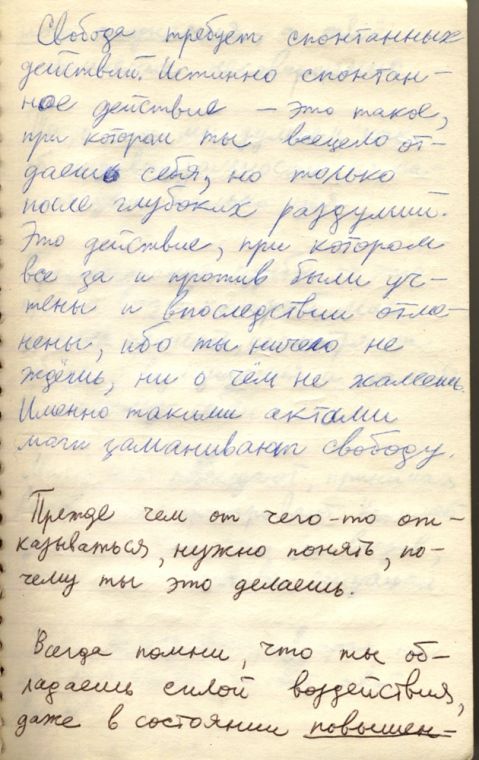 Свобода требует спонтанных
действий. Истинно спонтан-
ное действие – это такое,
при котором ты всецело от-
даешь себя, но только
после глубоких раздумий.
Это действие, при котором
все за и против были уч-
тены и впоследствии откло-
нены, ибо ты ничего не
ждёшь, ни о чём не жалеешь.
Именно такими актами
маги заманивают свободу.
Прежде чем от чего-то от-
казываться, нужно понять, по-
чему ты это делаешь.
Всегда помни, что ты об-
ладаешь силой воздействия,
даже в состоянии повышен-